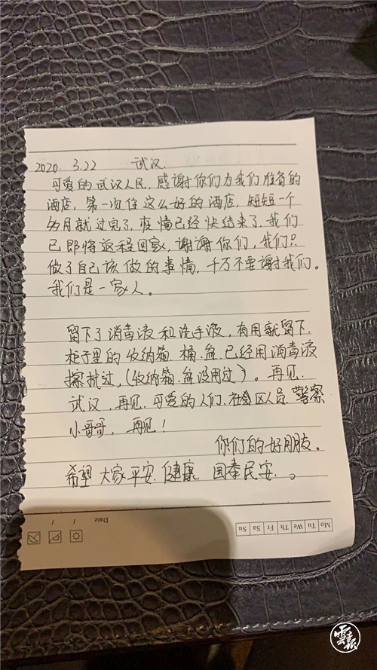 2020 3.22 武汉
可爱的武汉人民，感谢你们为我们准备的
酒店，第一次住这么好的酒店，短短一个
多月就过完了，疫情已经快结束了，我们
已即将返程回家，谢谢你们，我们只
做了自己该做的事情，千万不要谢我们。
我们是一家人。
留下了消毒液和洗手液，有用就留下，
柜子里的收纳箱、桶、盆、已经用消毒液
擦拭过，(收纳箱、盆没用过)。再见
武汉，再见，可爱的人们，社区人员 警察
小哥哥，再见！
你们的好朋友。
希望大家平安 健康 国泰民安。
Date / /
Mo Tu We Th Fr Sa Su